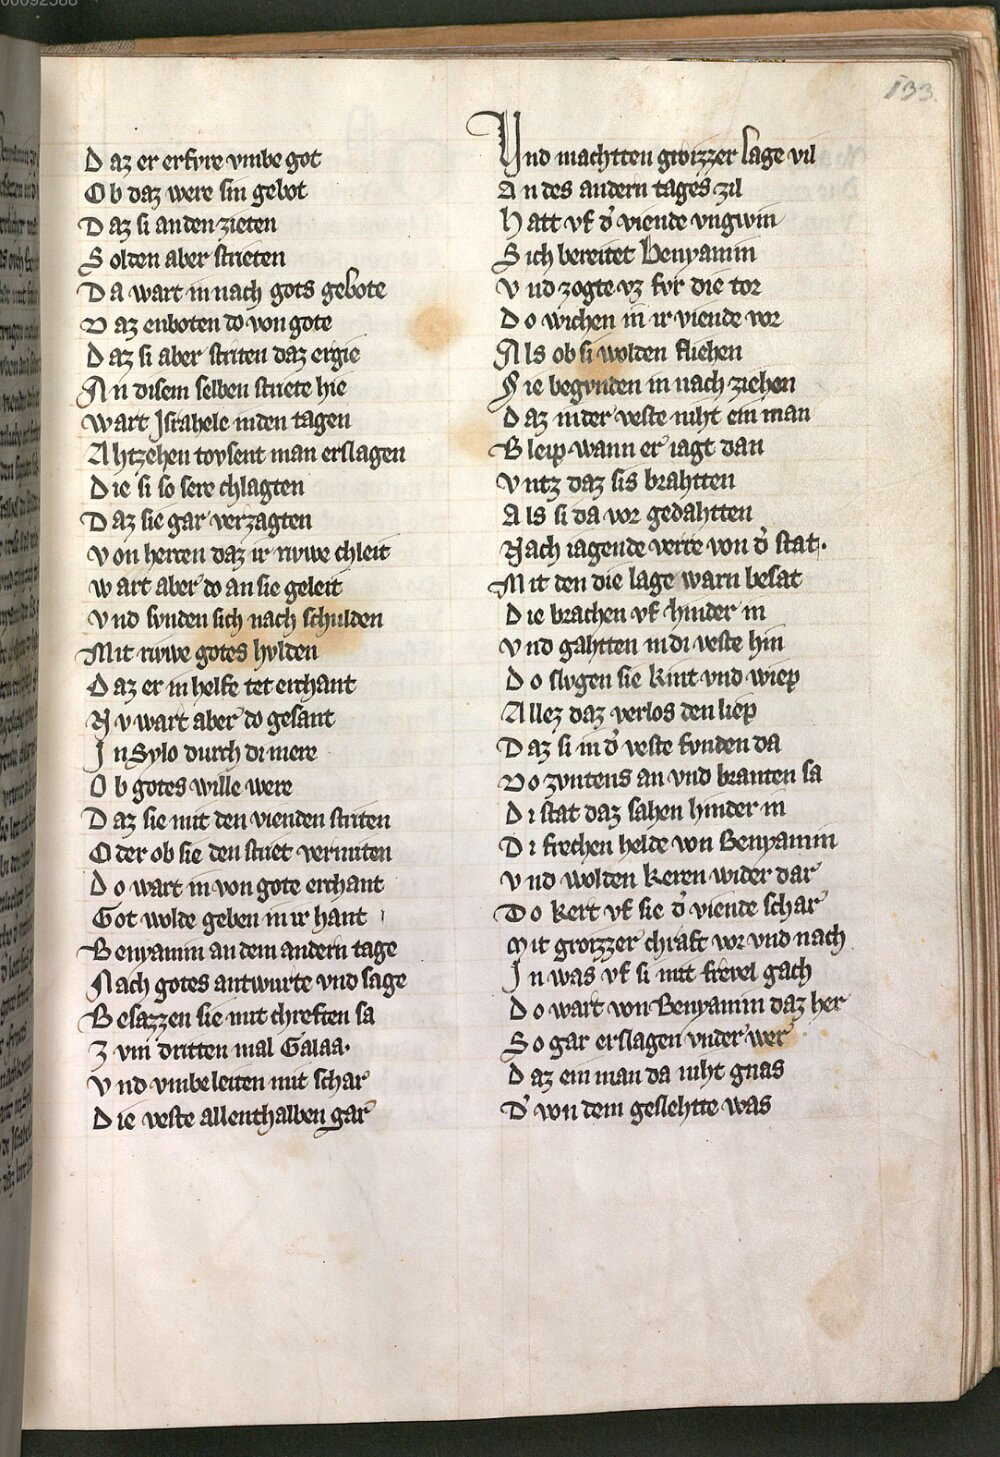 133
Daz er erfvre vmbe got
Ob daz were sin gebot
Daz si an den ziten
Solden aber striten
Da wart in nach gots gebote
Daz enboten do von gote
Daz si aber striten daz ergie
An disem selben striete hie
Wart Israhele in den tagen
Ahtzehen tovsent man erslagen
Die si so sere chlagten
Daz sie gar verzagten
Von herten daz ir rivwe chleit
Wart aber do an sie geleit
Vnd svnden sich nach schulden
Mit rivwe gotes hvlden
Daz er in helfe tet erchant
Nv wart aber do gesant
In Sylo durch di mere
Ob gotes wille were
Daz sie mit den vienden striten
Oder ob sie den striet vermiten
Do wart in von gote erchant
Got wolde geben in ir hant
Benyamin an dem andern tage
Nach gotes antwurte vnd sage
Besazzen sie mit chreften sa
Zvm dritten mal Galaa.
Vnd vmbeleiten mit schar
Die veste allenthalben gar
Vnd machtten groizzer lage vil
An des andern tages zil
Hatt vf d' viende vngwin
Sich bereitet Benyamin
Vnd zogte vz fvr die tor
Do wichen in ir viende vor
Als ob si wolden fliehen
Sie begvnden in nach ziehen
Daz in der veste niht ein man
Bleip wann er iagt dan
Vntz daz sis brahtten
Als si da vor gedahtten
Nach iagende verre von d' stat.
Mit den die lage warn besat
Die brachen vf hinder in
Vnd gahtten in di veste hin
Do slvgen sie kint vnd wiep
Allez daz verlos den liep
Daz si in d' veste fvnden da
Do zvntens an vnd branten sa
Di stat daz sahen hinder in
Di frechen helde von Benyamin
Vnd wolden keren wider dar
Do kert vf sie d' viende schar
Mit groizzer chraft vor vnd nach
In was vf si mit frevel gach
Do wart von Benyamin daz her
So gar erslagen vnder wer
Daz ein man da niht gnas
D' von dem geslehtte was